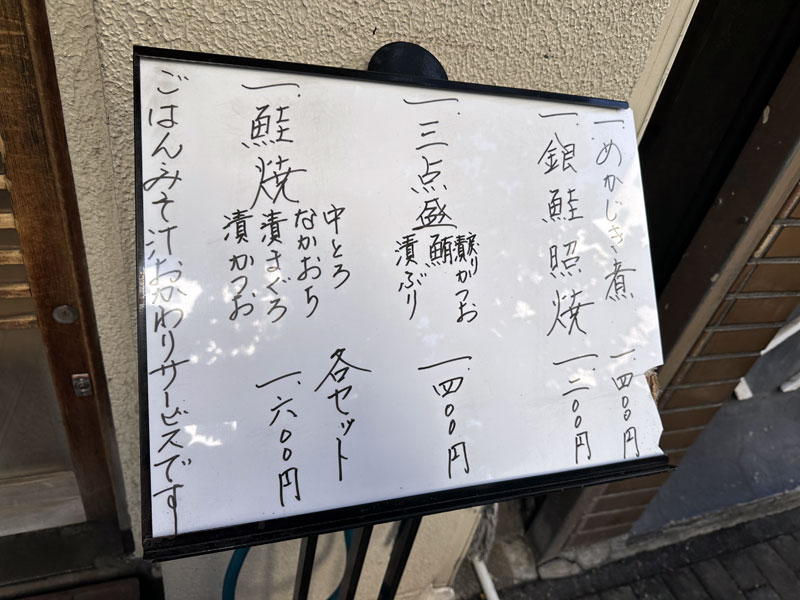 一、めかじき煮 一、四〇〇円
一、銀鮭照焼 一、三〇〇円
一、三点盛 漬かつお 鮪 漬ぶり 一、四〇〇円
一、鮭焼 中とろ なかおち 漬まぐろ 漬かつお 各セット 一、六〇〇円
ごはん、みそ汁おかわりサービスです